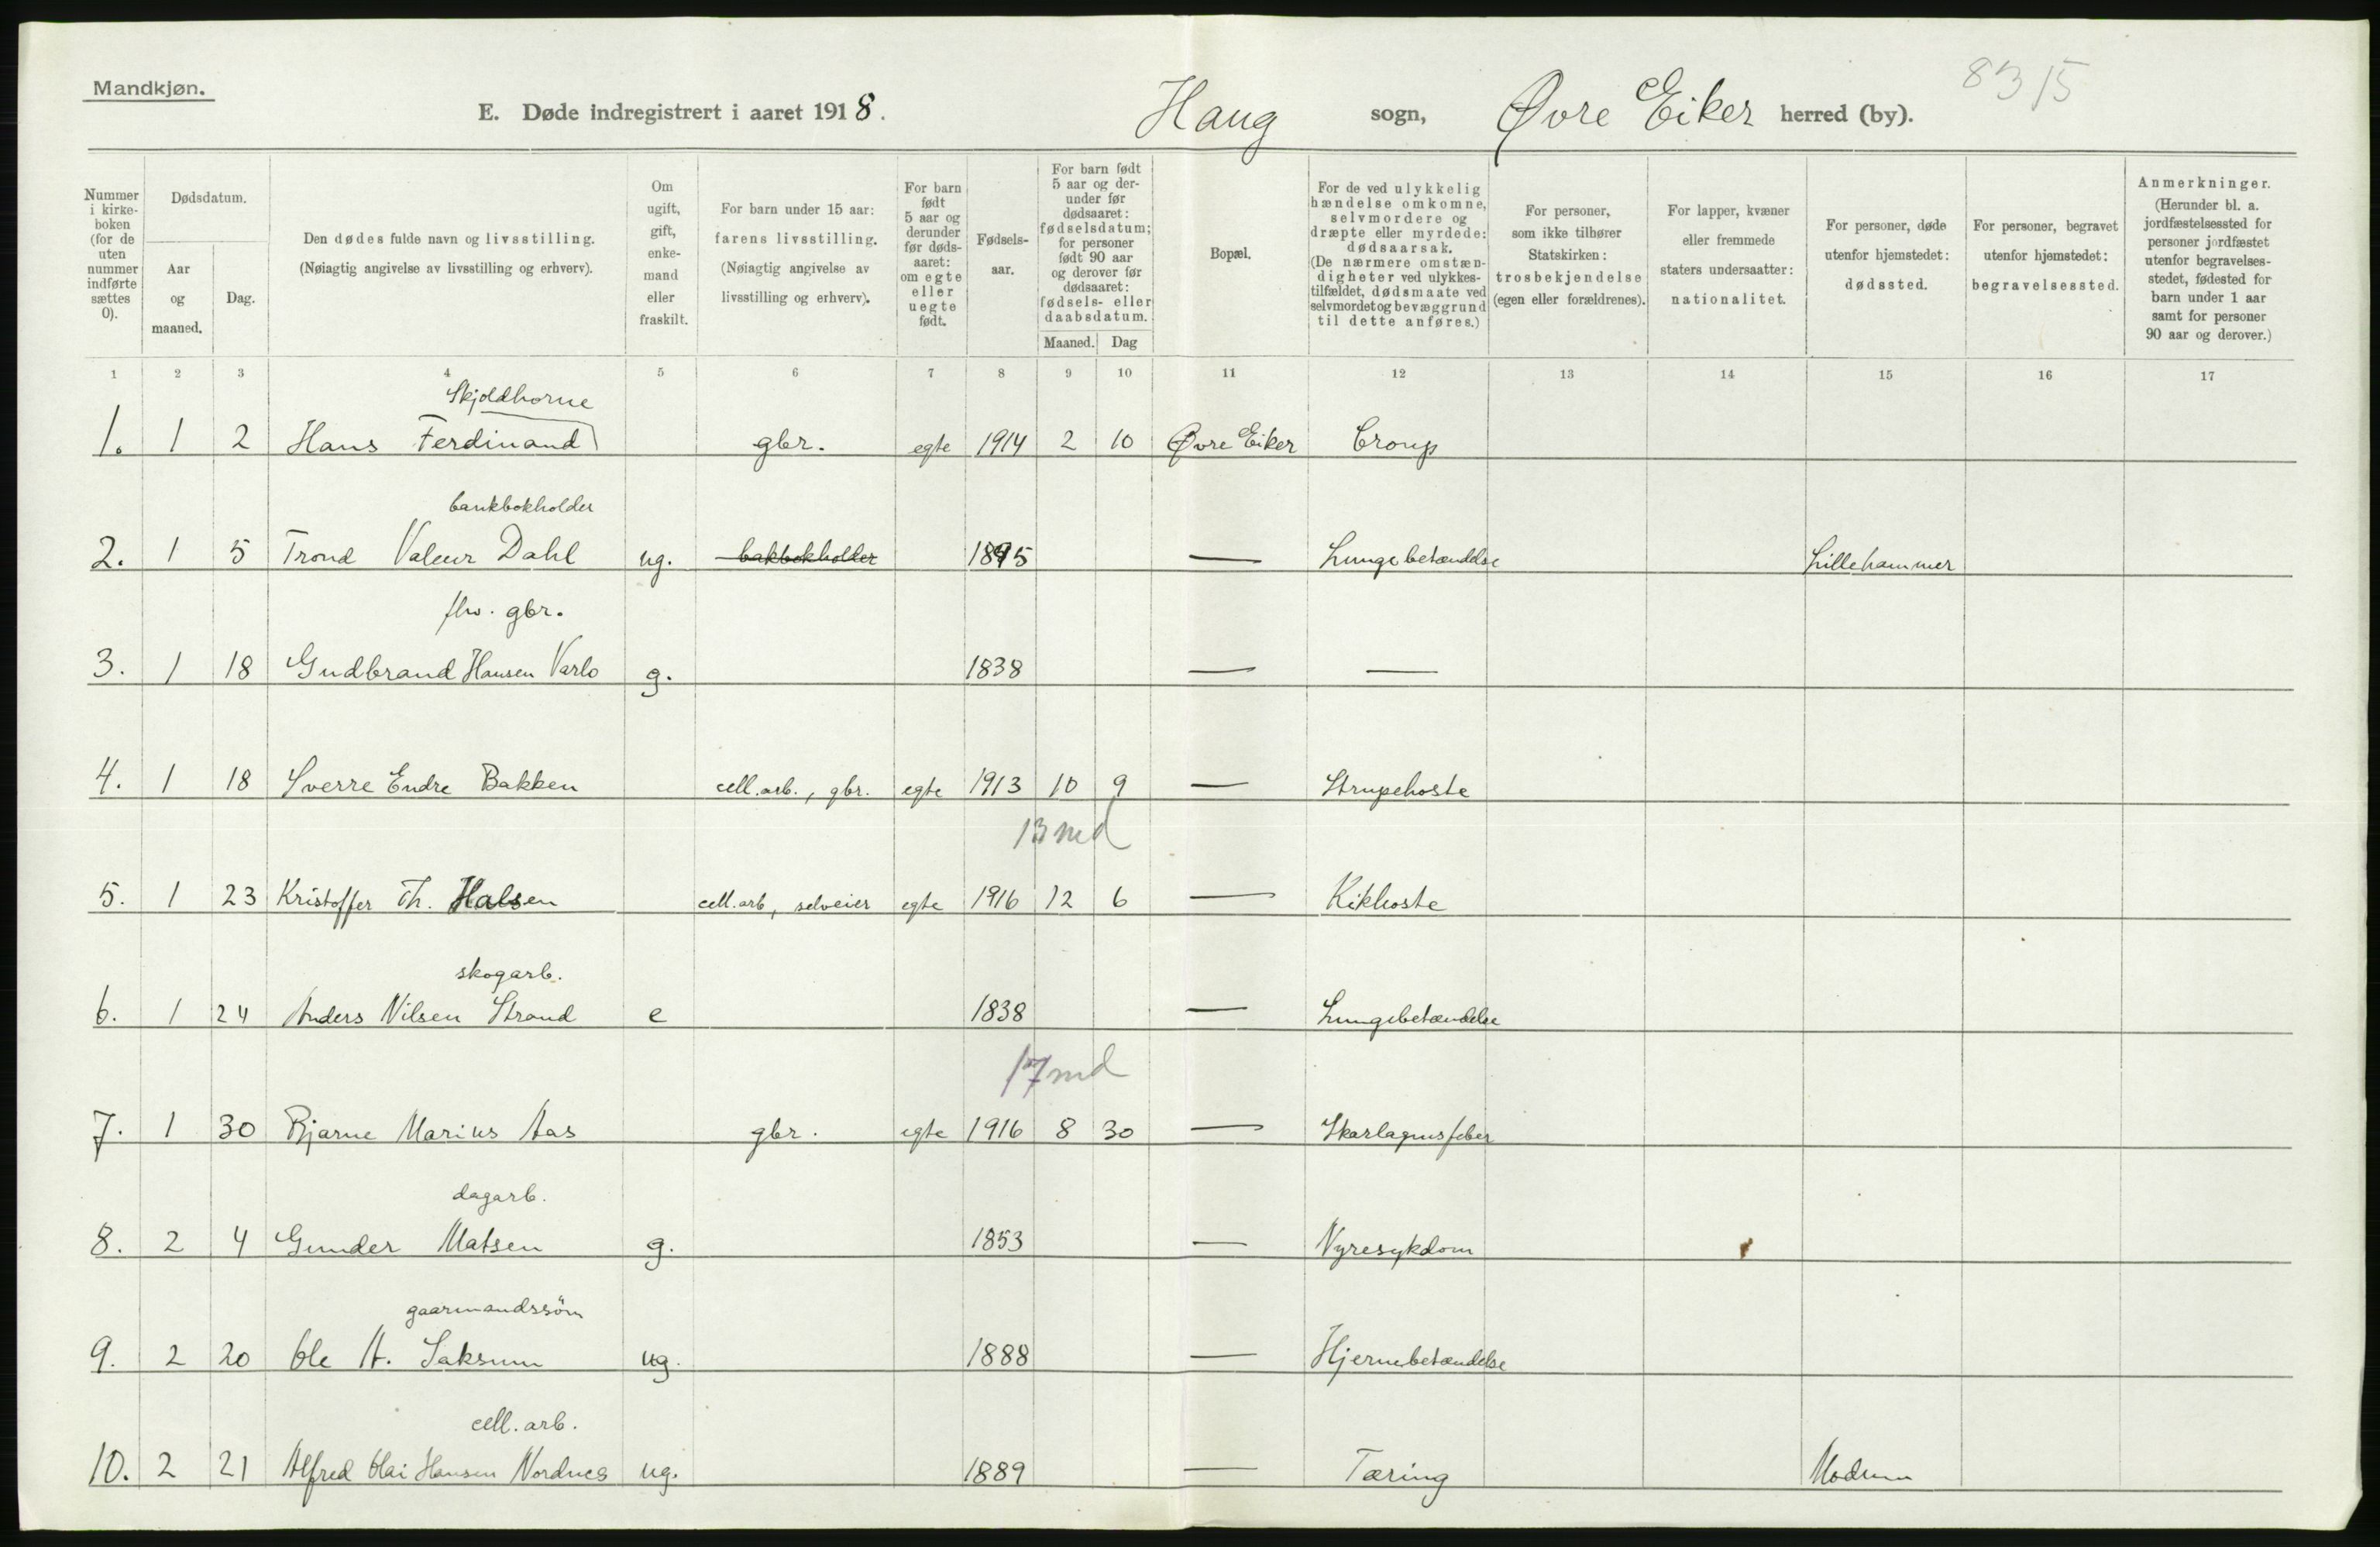 Mandkjøn.
8315
E. Døde indregistrert i aaret 1918. Haug sogn, Øvre Eiker herred (by).
Nummer i kirkeboken (for de uten nummer indførte sættes 0).
Dødsdatum.
Aar og maaned.
Dag.
Den dødes fulde navn og livsstilling.
(Nøiagtig angivelse av livsstilling og erhverv).
Om ugift, gift, enkemand eller fraskilt.
For barn under 15 aar: farens livsstilling.
(Nøiagtig angivelse av livsstilling og erhverv).
For barn født 5 aar og derunder før dødsaaret: om egte eller uegte født.
Fødselsaar.
For barn født 5 aar og derunder før dødsaaret: fødselsdatum; for personer født 90 aar og derover før dødsaaret: fødsels- eller daabsdatum.
Maaned. Dag
Bopæl.
For de ved ulykkelig hændelse omkomne, selvmordere og dræpte eller myrdede: dødsaarsak. (De nærmere omstændigheter ved ulykkestilfældet, dødsmaate ved selvmordet og bevæggrund til dette anføres.)
For personer, som ikke tilhører Statskirken: trosbekjendelse (egen eller forældrenes).
For lapper, kvæner eller fremmede staters undersaatter: nationalitet.
For personer, døde utenfor hjemstedet: dødssted.
For personer, begravet utenfor hjemstedet: begravelsessted.
Anmerkninger. (Herunder bl. a. jordfæstelsessted for personer jordfæstet utenfor begravelsesstedet, fødested for barn under 1 aar samt for personer 90 aar og derover.)
1 2 3 4 5 6 7 8 9 10 11 12 13 14 15 16 17
Skjoldhorne
1. 1 2 Hans Ferdinand gbr. egte 1914 2 10 Øvre Eiker Croup
bankbokholder
2. 1 5 Trond Valeur Dahl ug. bakbokholder 1895 — Lungebetændelse Lillehammer
fhv. gbr.
3. 1 18 Gudbrand Hansen Varlo g. 1838 — —
4. 1 18 Sverre Endre Bakken cell.arb., gbr. egte 1913 10 9 — Strupehoste
13 md
5. 1 23 Kristoffer Th. Halsen cell.arb, selveier egte 1916 12 6 — Kikhoste
skogarb.
6. 1 24 Anders Nilsen Strand e 1838 — Lungebetændelse
17 md
7. 1 30 Bjarne Marius Aas gbr. egte 1916 8 30 — Skarlagensfeber
dagarb.
8. 2 4 Gunder Matsen g. 1853 — Nyresykdom
gaarmandssøn
9. 2 20 Ole A. Saksum ug. 1888 — Hjernebetændelse
cell. arb.
10. 2 21 Alfred Olai Hansen Nordnes ug. 1889 — Tæring Modum